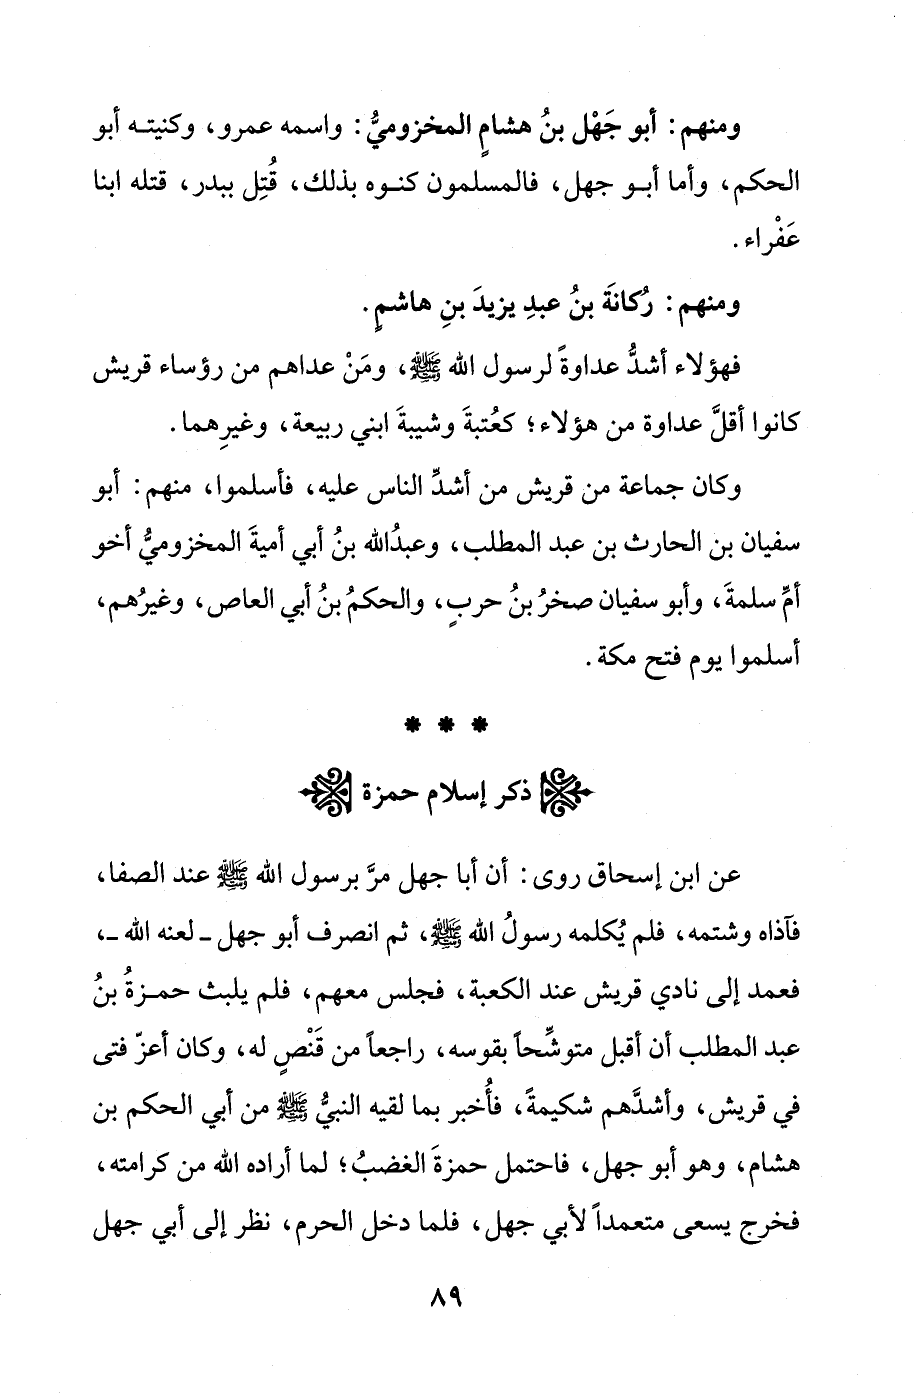 ومنهم: أبو جَهْل بنُ هشامٍ المخزوميُّ: واسمه عمرو، وكنيته أبو
الحكم، وأما أبو جهل، فالمسلمون كنوه بذلك، قُتِل ببدر، قتله ابنا
عَفْراء.
ومنهم: رُكانَةَ بنُ عبدِ يزيدَ بنِ هاشمٍ.
فهؤلاء أشدُّ عداوةً لرسول الله ﷺ، ومَنْ عداهم من رؤساء قريش
كانوا أقلَّ عداوة من هؤلاء؛ كعُتبةَ وشيبةَ ابني ربيعة، وغيرِهما.
وكان جماعة من قريش من أشدِّ الناس عليه، فأسلموا، منهم: أبو
سفيان بن الحارث بن عبد المطلب، وعبدُالله بنُ أبي أميةَ المخزوميُّ أخو
أمِّ سلمةَ، وأبو سفيان صخرُ بنُ حربٍ، والحكمُ بنُ أبي العاص، وغيرُهم،
أسلموا يوم فتح مكة.
* * *
ذكر إسلام حمزة
عن ابن إسحاق روى: أن أبا جهل مرَّ برسول الله ﷺ عند الصفا،
فآذاه وشتمه، فلم يُكلمه رسولُ الله ﷺ، ثم انصرف أبو جهل ـ لعنه الله ـ،
فعمد إلى نادي قريش عند الكعبة، فجلس معهم، فلم يلبث حمزةُ بنُ
عبد المطلب أن أقبل متوشِّحاً بقوسه، راجعاً من قَنْصٍ له، وكان أعزّ فتى
في قريش، وأشدَّهم شكيمةً، فأُخبر بما لقيه النبيُّ ﷺ من أبي الحكم بن
هشام، وهو أبو جهل، فاحتمل حمزةَ الغضبُ؛ لما أراده الله من كرامته،
فخرج يسعى متعمداً لأبي جهل، فلما دخل الحرم، نظر إلى أبي جهل
٨٩